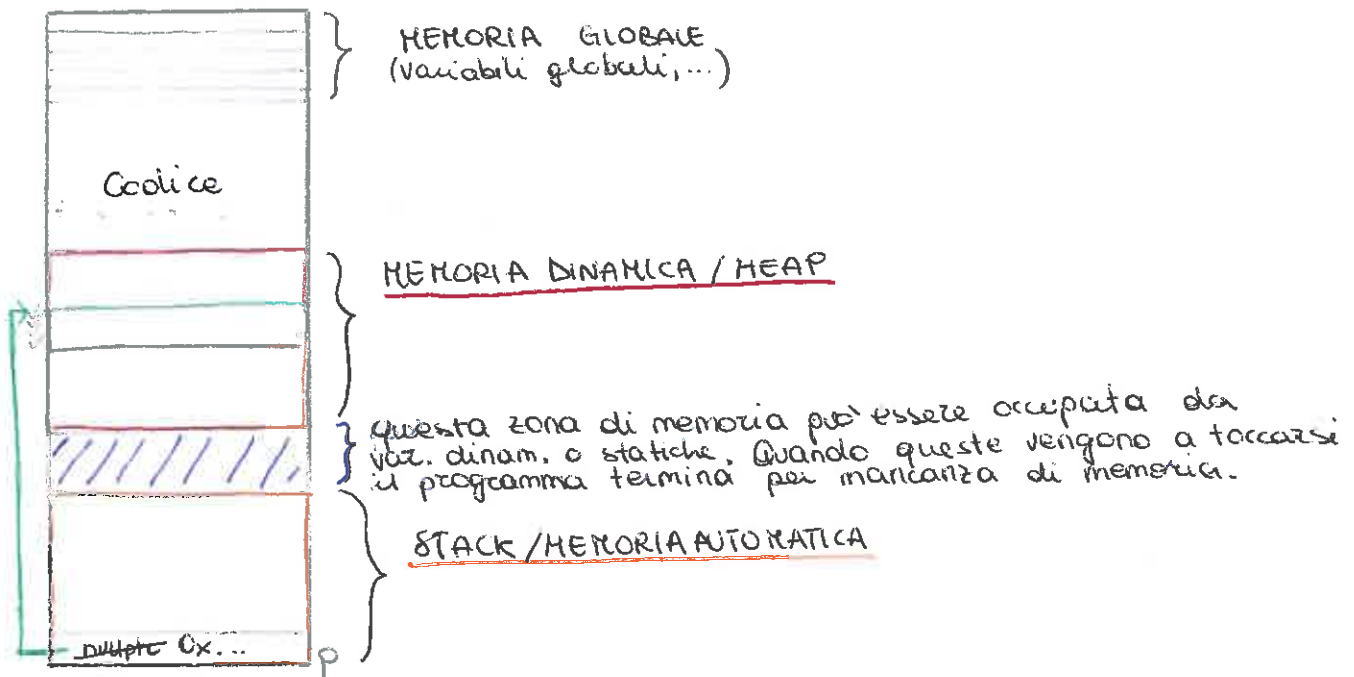 MEMORIA GLOBALE
(variabili globali,...)
Codice
MEMORIA DINAMICA / HEAP
questa zona di memoria può essere occupata da
var. dinam. o statiche. Quando queste vengono a toccarsi
il programma termina per mancanza di memoria.
STACK / MEMORIA AUTOMATICA
nullptr 0x...
p